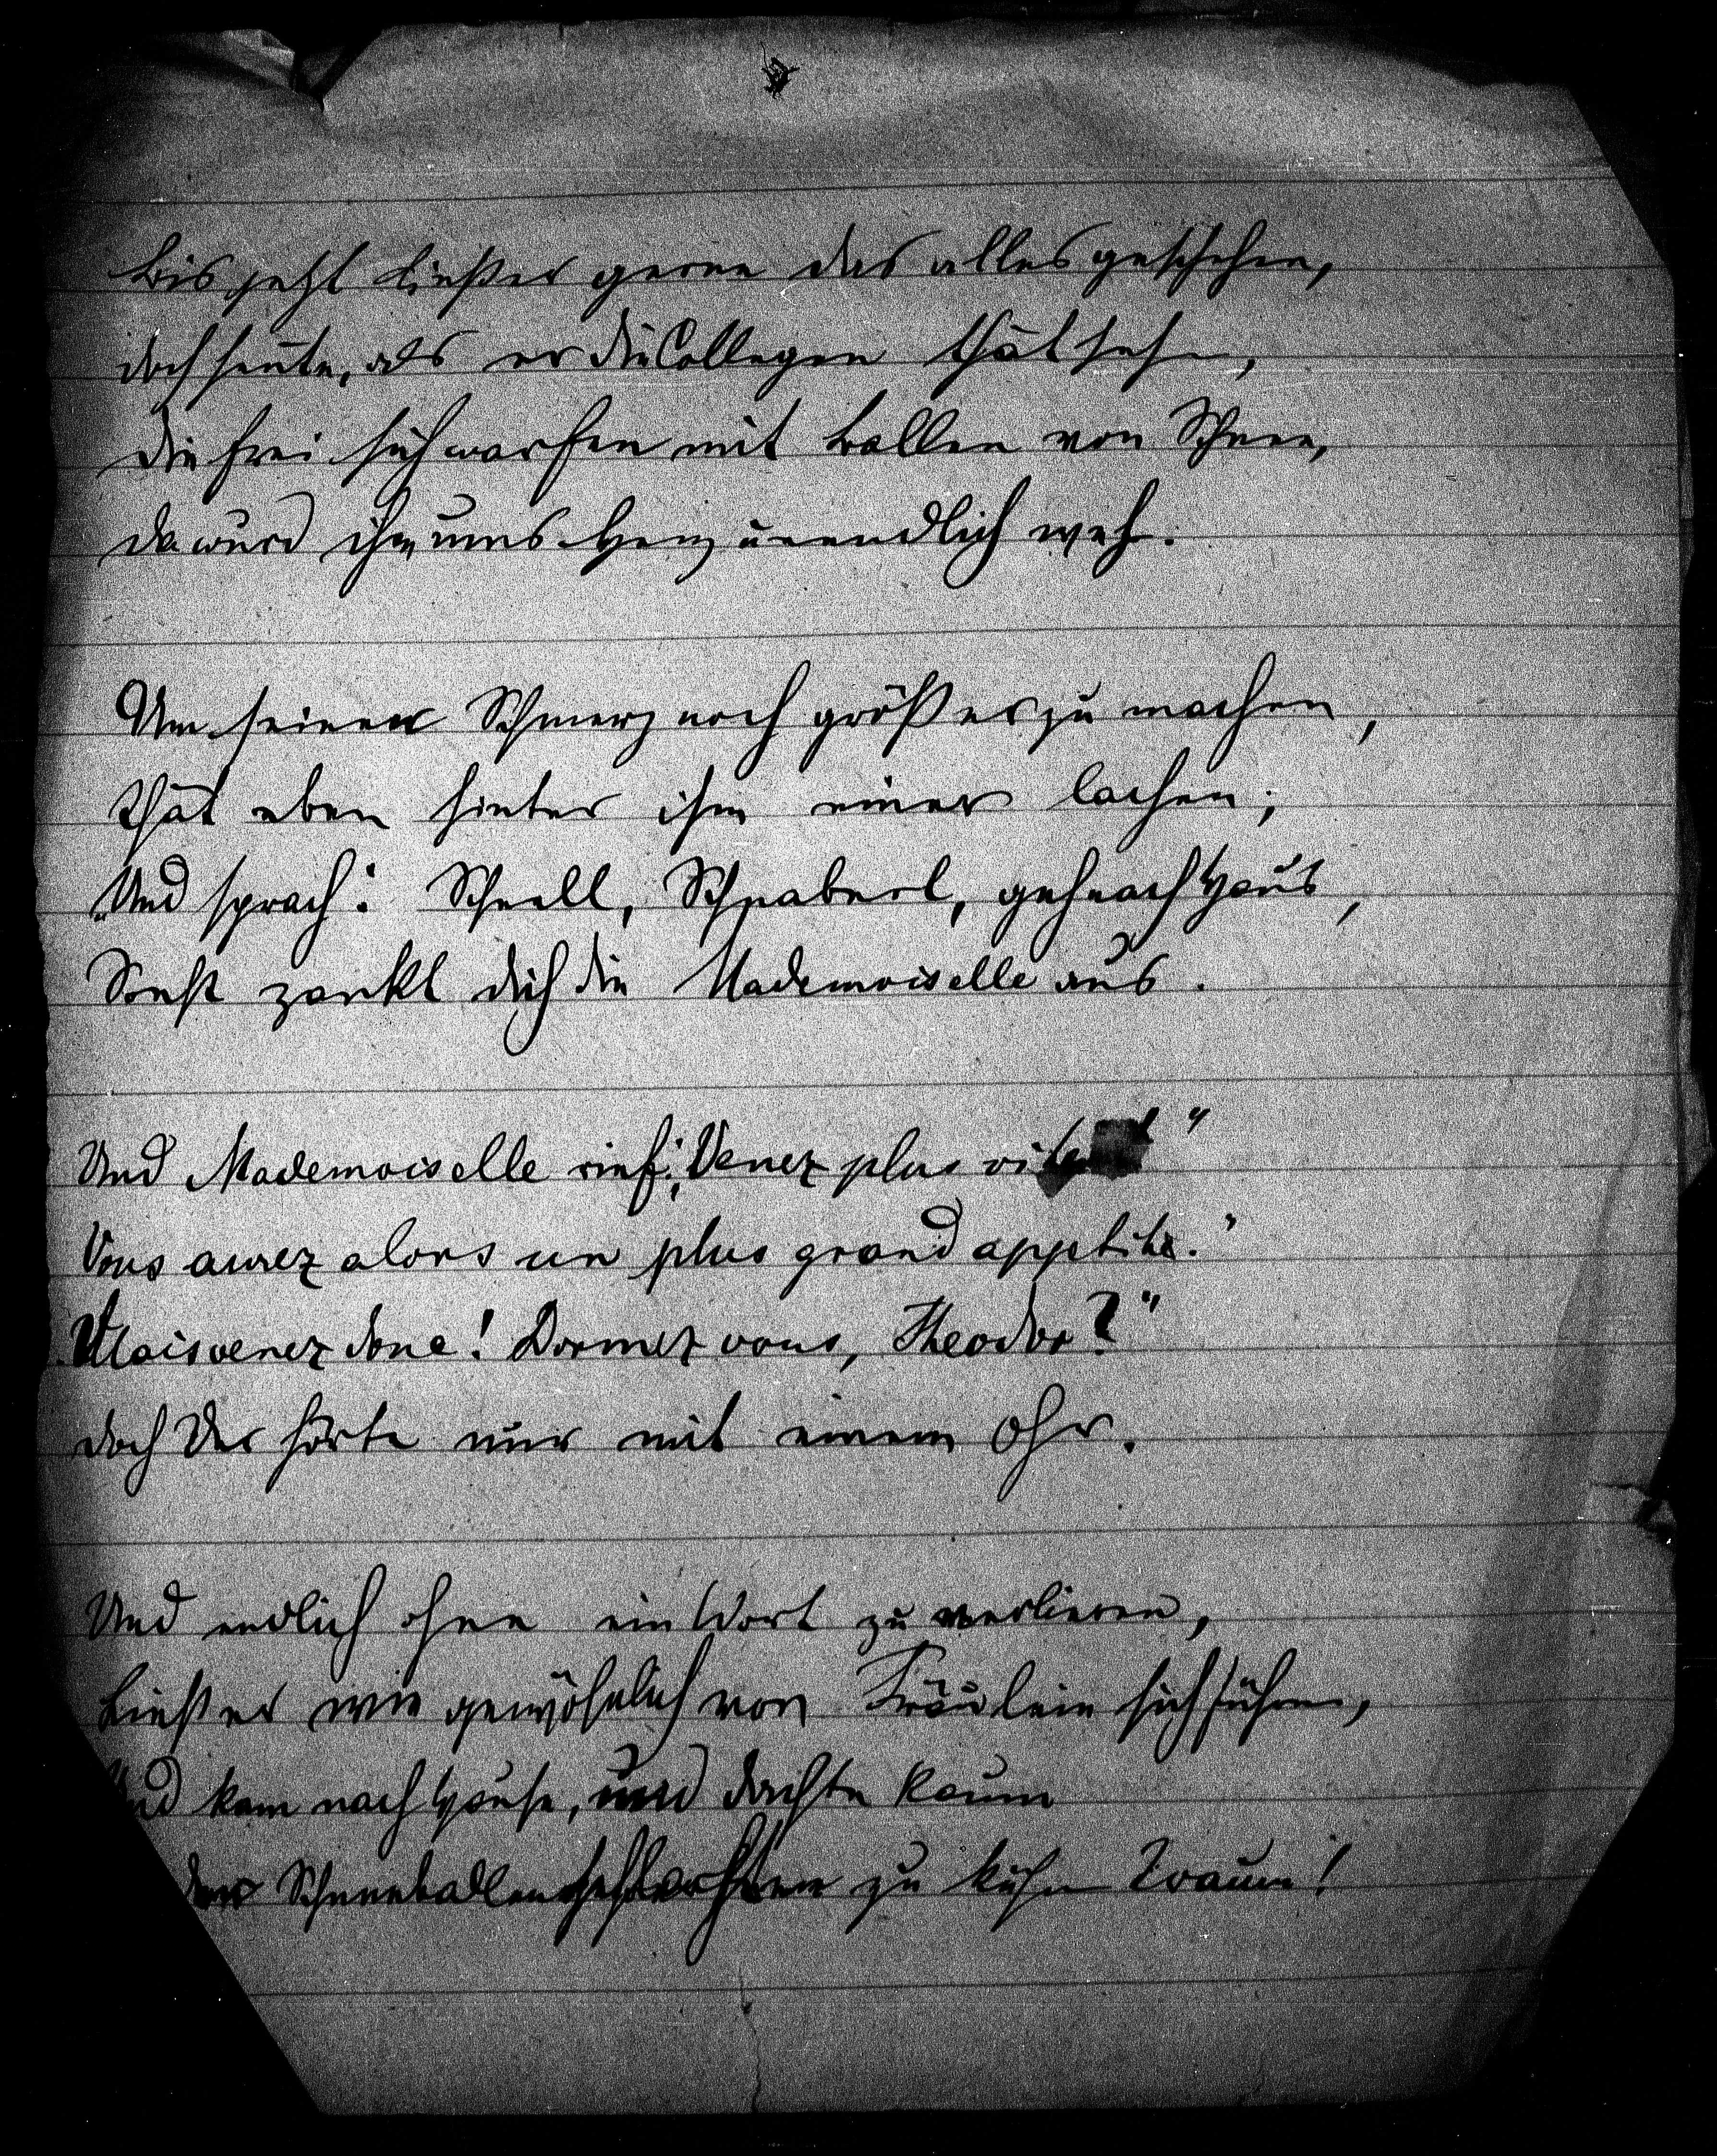 Bis jetzt ließ er gerne das alles geschehen,
doch heute, als er die Collegen thät sehen,
die frei sich warfen mit Ballen von Schnee,
da wurd ihm ums Herz unendlich weh.
Um seinen Schmerz noch größer zu machen,
thät eben hinter ihm einer lachen;
„Und sprach: Schnell, Schnaberl, geh nach Haus,
Sonst zankt dich die Mademoiselle aus.
Und Mademoiselle rief: „Venez plus vite"
Vous aurez alors un plus grand appetite."
Mais venez donc! Dormez vous, Theodor?"
doch Der hörte nur mit einem Ohr.
Und endlich ohne ein Wort zu verlieren,
Ließ er wie gewöhnlich von Fräulein sich führen,
Und kam nach Hause, und dachte kaum
der Schneeballenschlachten zu kühn Traum!